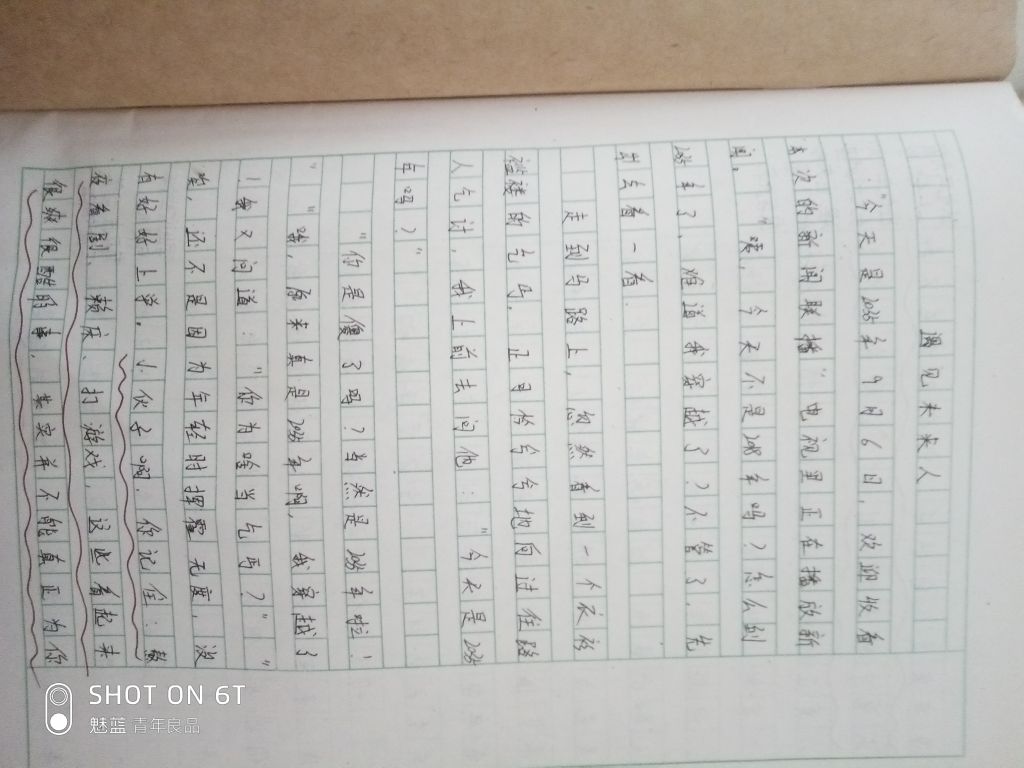 遇见未来人
"今天是2035年9月6日,欢迎收看
本次的新闻联播"电视里正在播放新
闻。
"咦,今天不是2018年吗?怎么到
2035年了,难道我穿越了?不管了,先
出去看一看.
走到马路上,忽然看到一个衣衫
褴褛的乞丐,正可怜兮兮地向过往路
人乞讨,我上前去问他:"今天是2035
年吗?"
"你是傻了吗?当然是2035年啦!
"
"咳,原来真是2035年啊,我穿越了
!我又问道:"你为啥当乞丐?"
"
唉,还不是因为年轻时挥霍无度,没
有好好上学。小伙子啊,你记住:熬
夜看剧、赖床、打游戏,这些看起来
很嗨很酷的事,其实并不能真正为你
SHOT ON 6T
魅蓝 青年良品